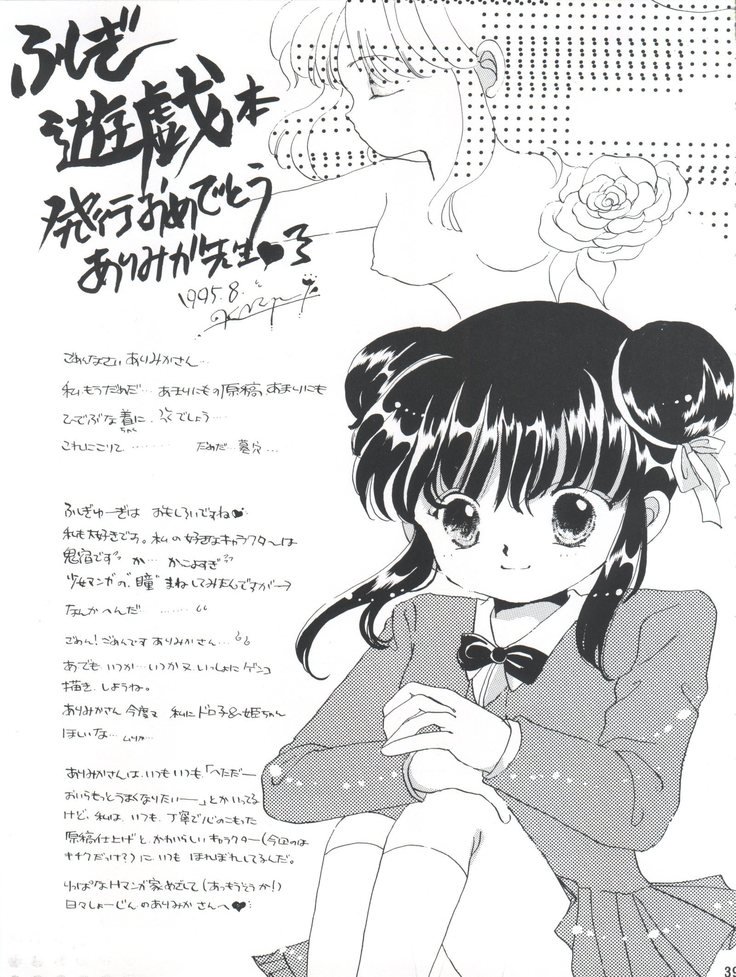 ふしぎ
遊戯本
発行おめでとう
ありみか先生♥
1995.8.
ごめんなさい ありみかさん…
私もうだめだ… あまりにもの原稿、あまりにも
ひでぶな着に、 でしょう……
ちゃく
これにこりて…… だめだ…墓穴…
ふしぎゆーぎは おもしろいですね♥
私も大好きです。私の好きなキャラクターは
鬼宿です か… かこよすぎ
少女マンガの"瞳"まねしてみたんですが→
なんかへんだ ………
ごめん!ごめんです ありみかさん…
あでも いつか… いつか又 いっしょに ゲンコ
描き しようね。
ありみかさん 今度 私に ドロ子&姫ちゃん
ほしいな… ムリか…
ありみかさんは、いつもいつも「へただー
おいらもっとうまくなりたいー」とかいってる
けど、私は、いつも、丁寧で心のこもった
原稿仕上げと、かわいらしいキャラクター(今回のは
キチクだっけ?)に、いつも ほれぼれしてるんだ。
りっぱなHマンガ家めざして(あっもうそうか!)
日々しょーじんのありみかさんへ♥
39